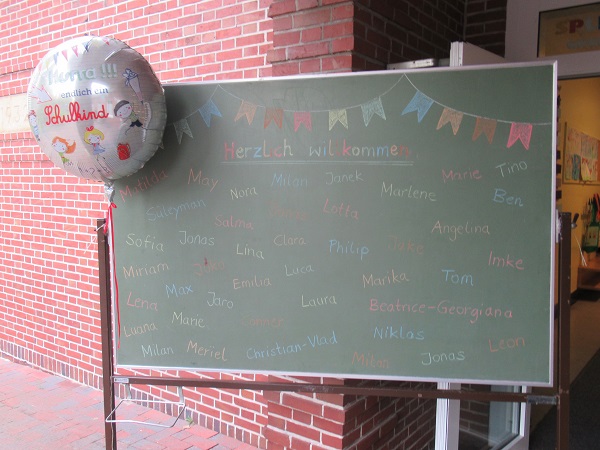 Hurra!!!
endlich ein
Schulkind
Herzlich willkommen
Matilda May Nora Milen Janek Marlene Marie Tino
Süleyman Lotta Ben
Salma Angelina
Sofia Jonas Lina Clara Philip Imke
Miriam Luca
Max Emilia Marika Tom
Lena Jaro Laura Beatrice-Georgiana
Luana Marie Niklas
Milan Meriel Christian-Vlad Milan Jonas Leon